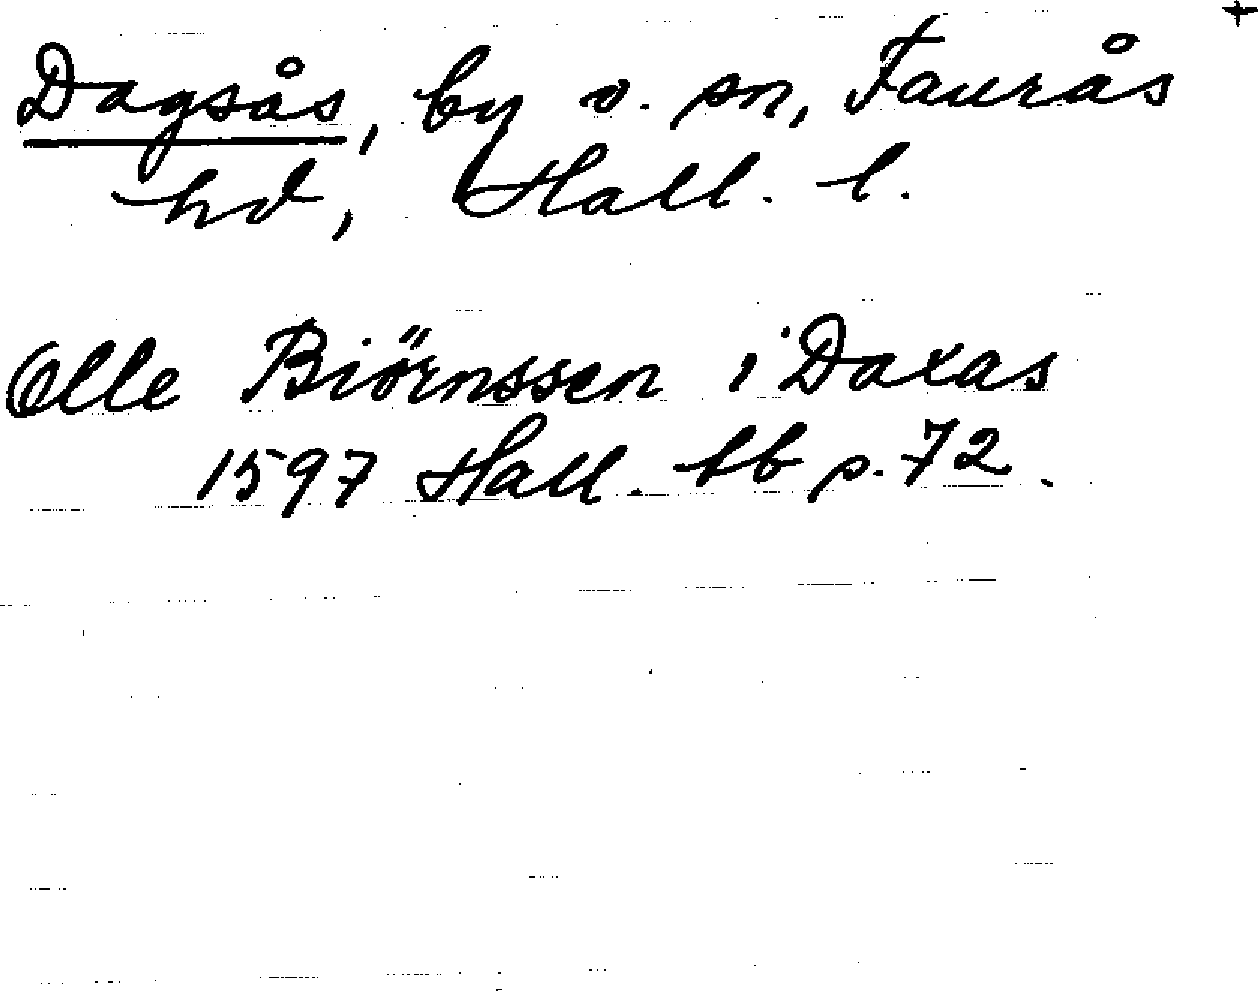 +
Dagsås, by o. sn, Faurås
hd, Hall. l.
Olle Biörnssen i Daxas
1597 Hall. bb p. 72.